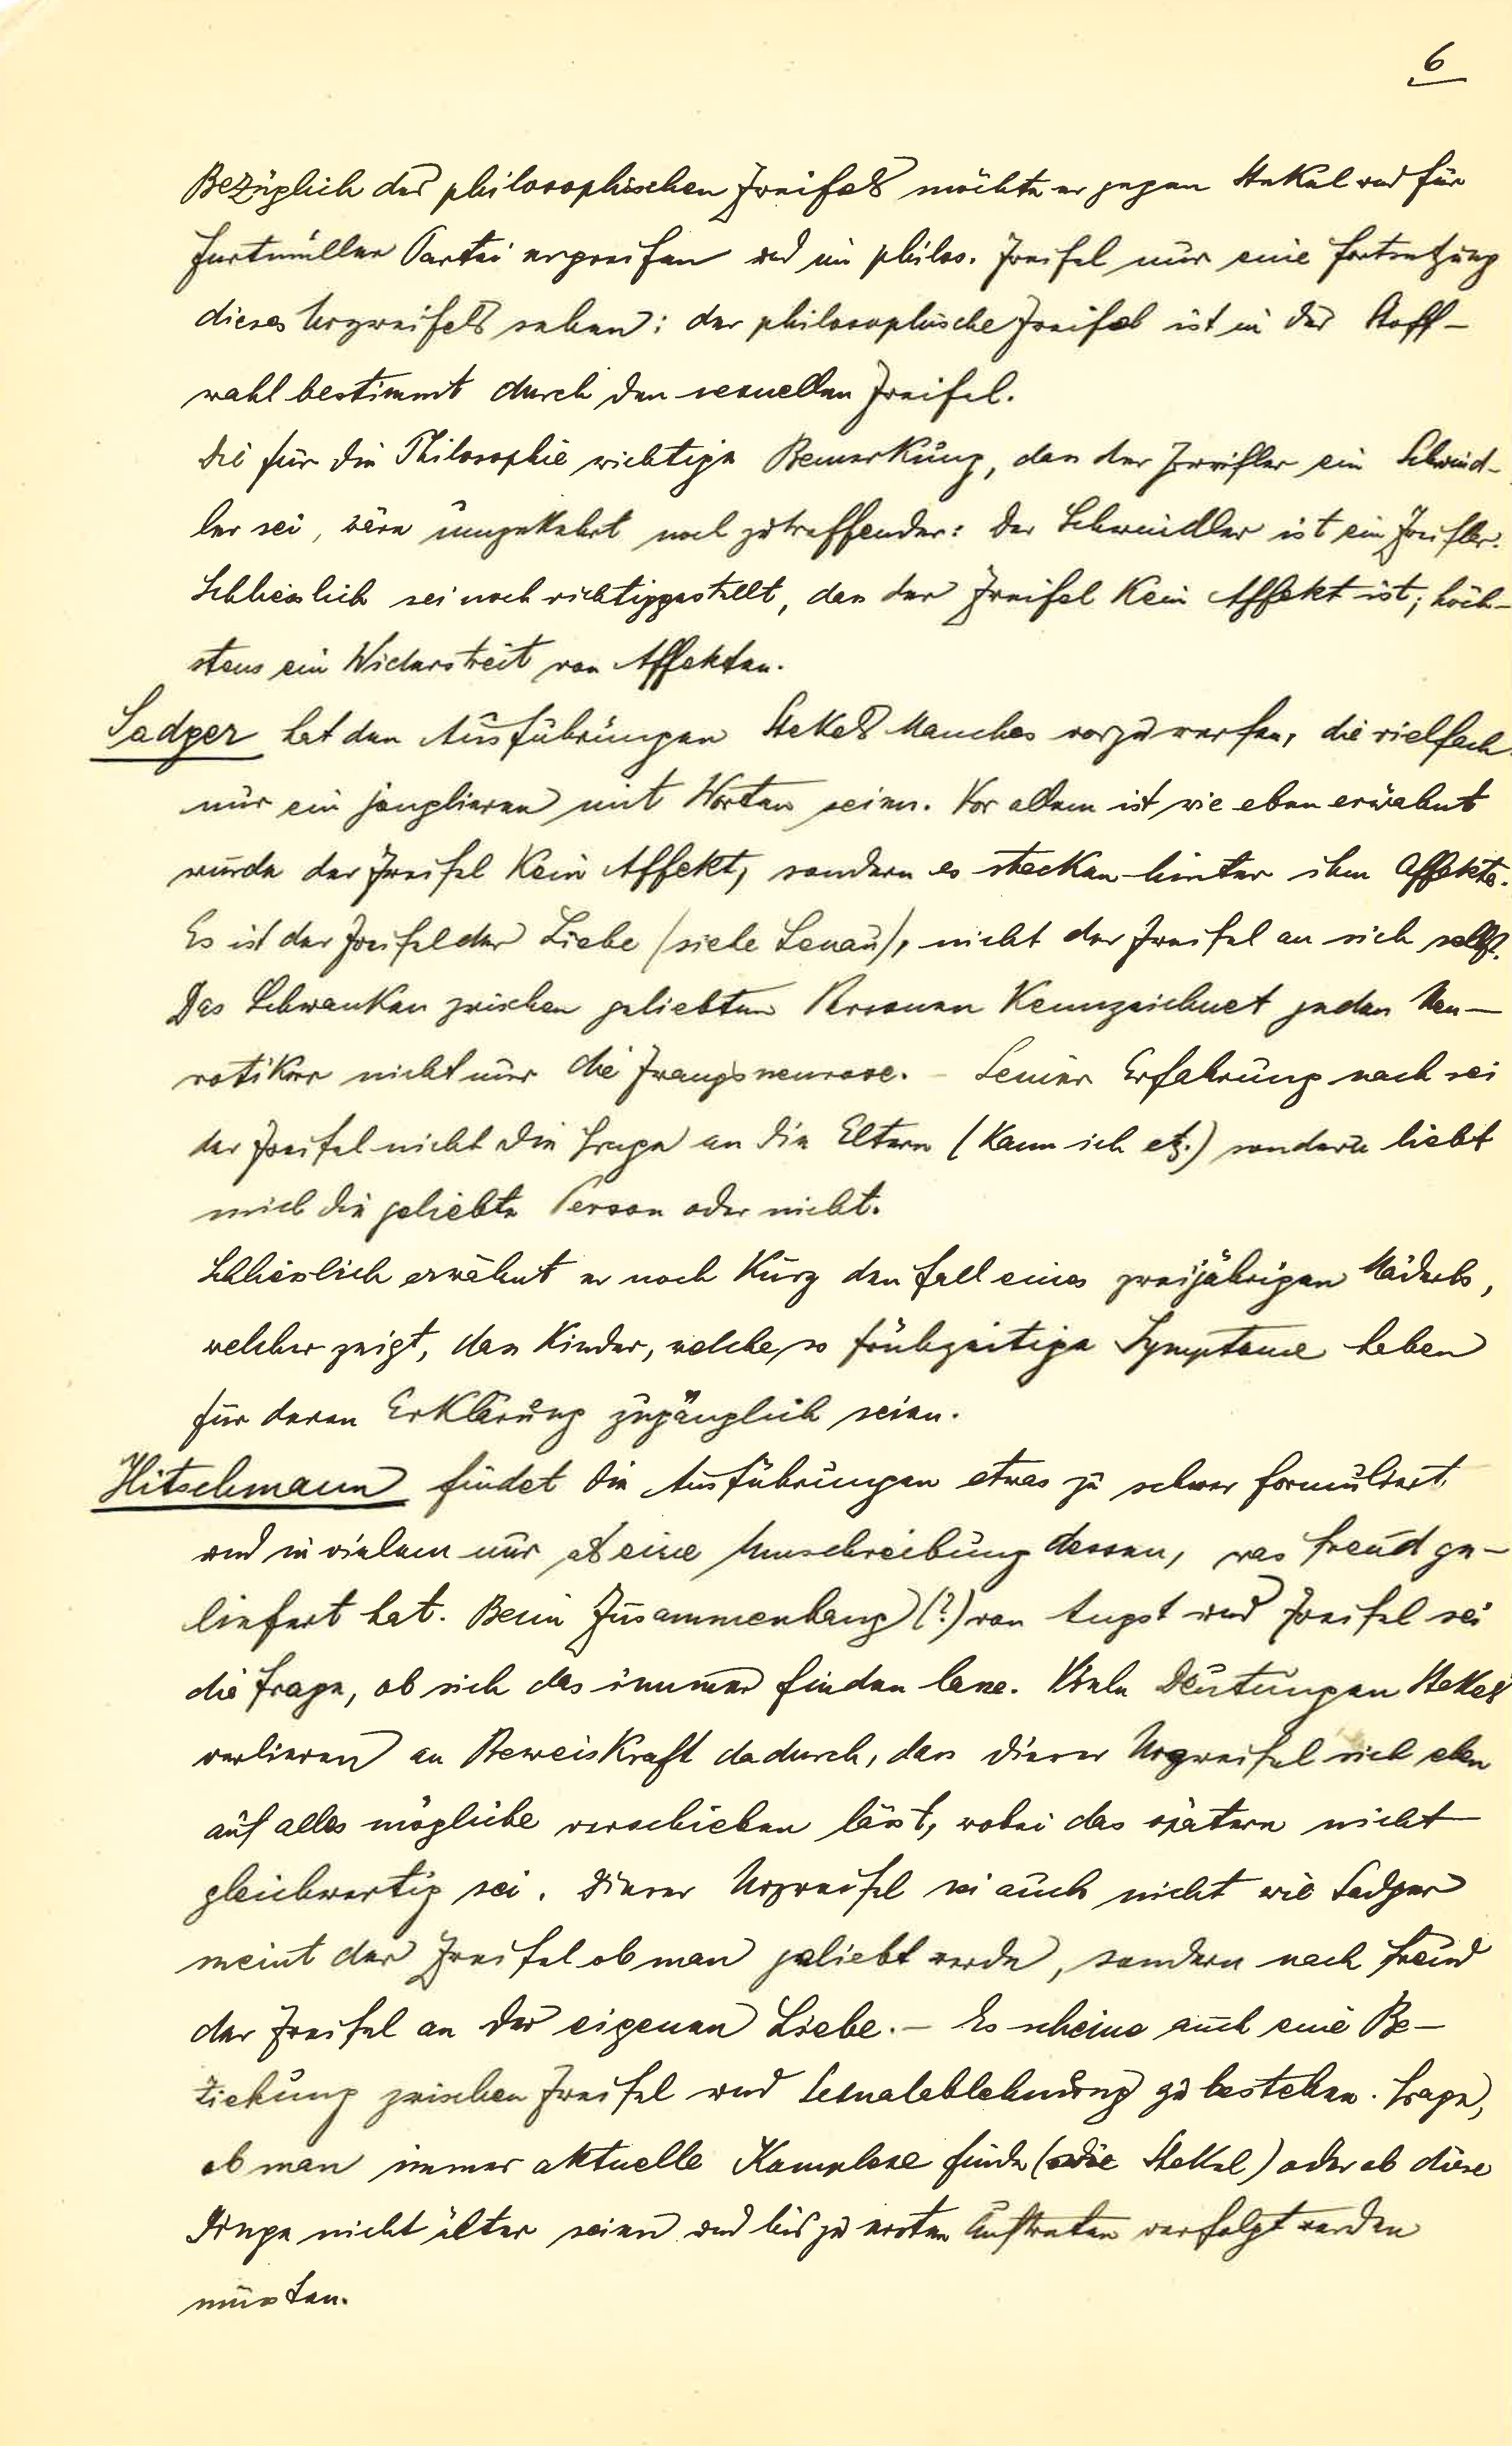 6
Bezüglich des philosophischen Zweifels möchte er gegen Stekel und für
Furtmüller Partei ergreifen und im philos. Zweifel nur eine Fortsetzung
dieses Urzweifels sehen: der philosophische Zweifel ist in der Stoff-
wahl bestimmt durch den sexuellen Zweifel.
Die für die Philosophie wichtige Bemerkung, dass der Zweifler ein Schwind-
ler sei, wäre umgekehrt noch zutreffender: der Schwindler ist ein Zweifler.
Schliesslich sei noch richtiggestellt, dass der Zweifel kein Affekt ist; höch-
stens ein Widerstreit von Affekten.
Sadger hat den Ausführungen Stekels Manches vorzuwerfen, die vielfach
nur ein jonglieren mit Worten seien. Vor allem ist wie eben erwähnt
wurde der Zweifel kein Affekt, sondern es stecken hinter ihm Affekte.
Es ist der Zweifel der Liebe (siehe Lenau), nicht der Zweifel an sich selbst.
Das Schwanken zwischen geliebten Personen kennzeichnet jeden Neu-
rotiker nicht nur die Zwangsneurose. – Seiner Erfahrung nach sei
der Zweifel nicht die Frage an die Eltern (kann ich etz.) sondern liebt
mich die geliebte Person oder nicht.
Schliesslich erwähnt er noch kurz den Fall eines zweijährigen Mäderls,
welcher zeigt, dass Kinder, welche so frühzeitige Symptome haben
für deren Erklärung zugänglich seien.
Hitschmann findet die Ausführungen etwas zu schwer formuliert
und in vielem nur als eine Umschreibung dessen, was Freud ge-
liefert hat. Beim Zusammenhang (?) von Angst und Zweifel sei
die Frage, ob sich das immer finden lasse. Viele Deutungen Stekels
verlieren an Beweiskraft dadurch, dass dieser Urzweifel sich eben
auf alles mögliche verschieben lässt, wobei das spätere nicht
gleichwertig sei. Dieser Urzweifel sei auch nicht wie Sadger
meint der Zweifel ob man geliebt werde, sondern nach Freud
der Zweifel an der eigenen Liebe. – Es scheine auch eine Be-
ziehung zwischen Zweifel und Sexualablehnung zu bestehen. Frage,
ob man immer aktuelle Komplexe finde (wie Stekel) oder ob diese
Dinge nicht älter seien und bis zu ersten Auftreten verfolgt werden
müssten.